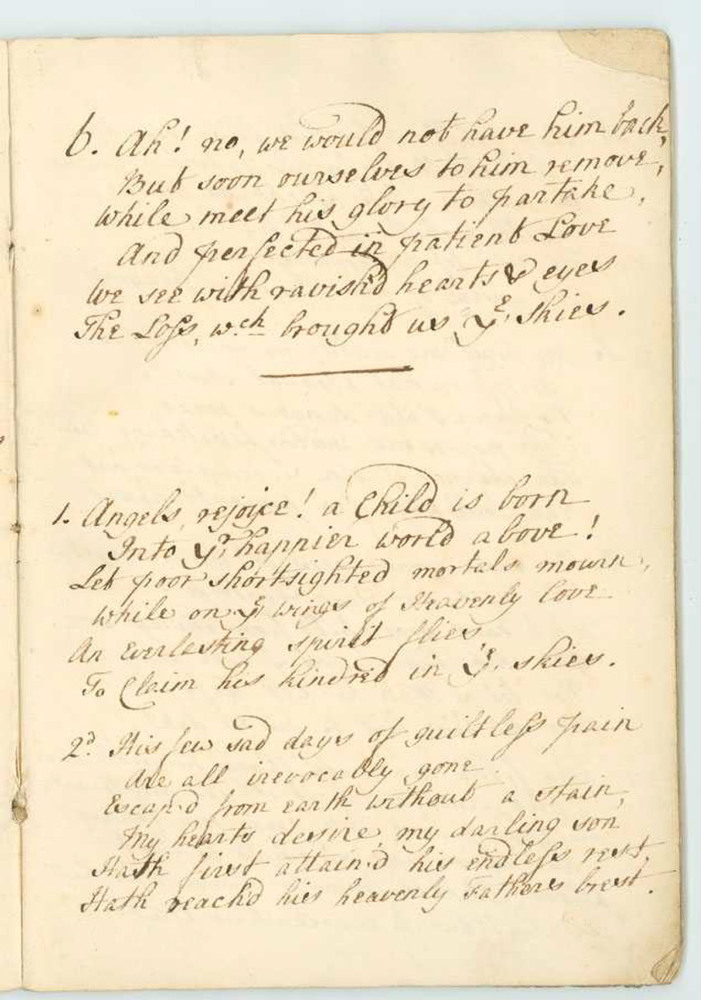 6. Ah! no, we would not have him back,
But soon ourselves to him remove,
While meet his glory to partake,
And perfected in patient Love
We see with ravish'd hearts & eyes
The Loss, w.ch brought us ye. skies.
1. Angels, rejoice! a Child is born
Into yr. happier world above!
Let poor shortsighted mortals mourn,
While on ye. wings of Heavenly love
An Everlasting spirit flies
To Claim his kindred in ye. skies.
2d. His few sad days of guiltless pain
Are all irevocably gone.
Escap'd from earth without a stain,
My hearts desire, my darling son
Hath first attain'd his endless rest,
Hath reach'd his heavenly Fathers brest.